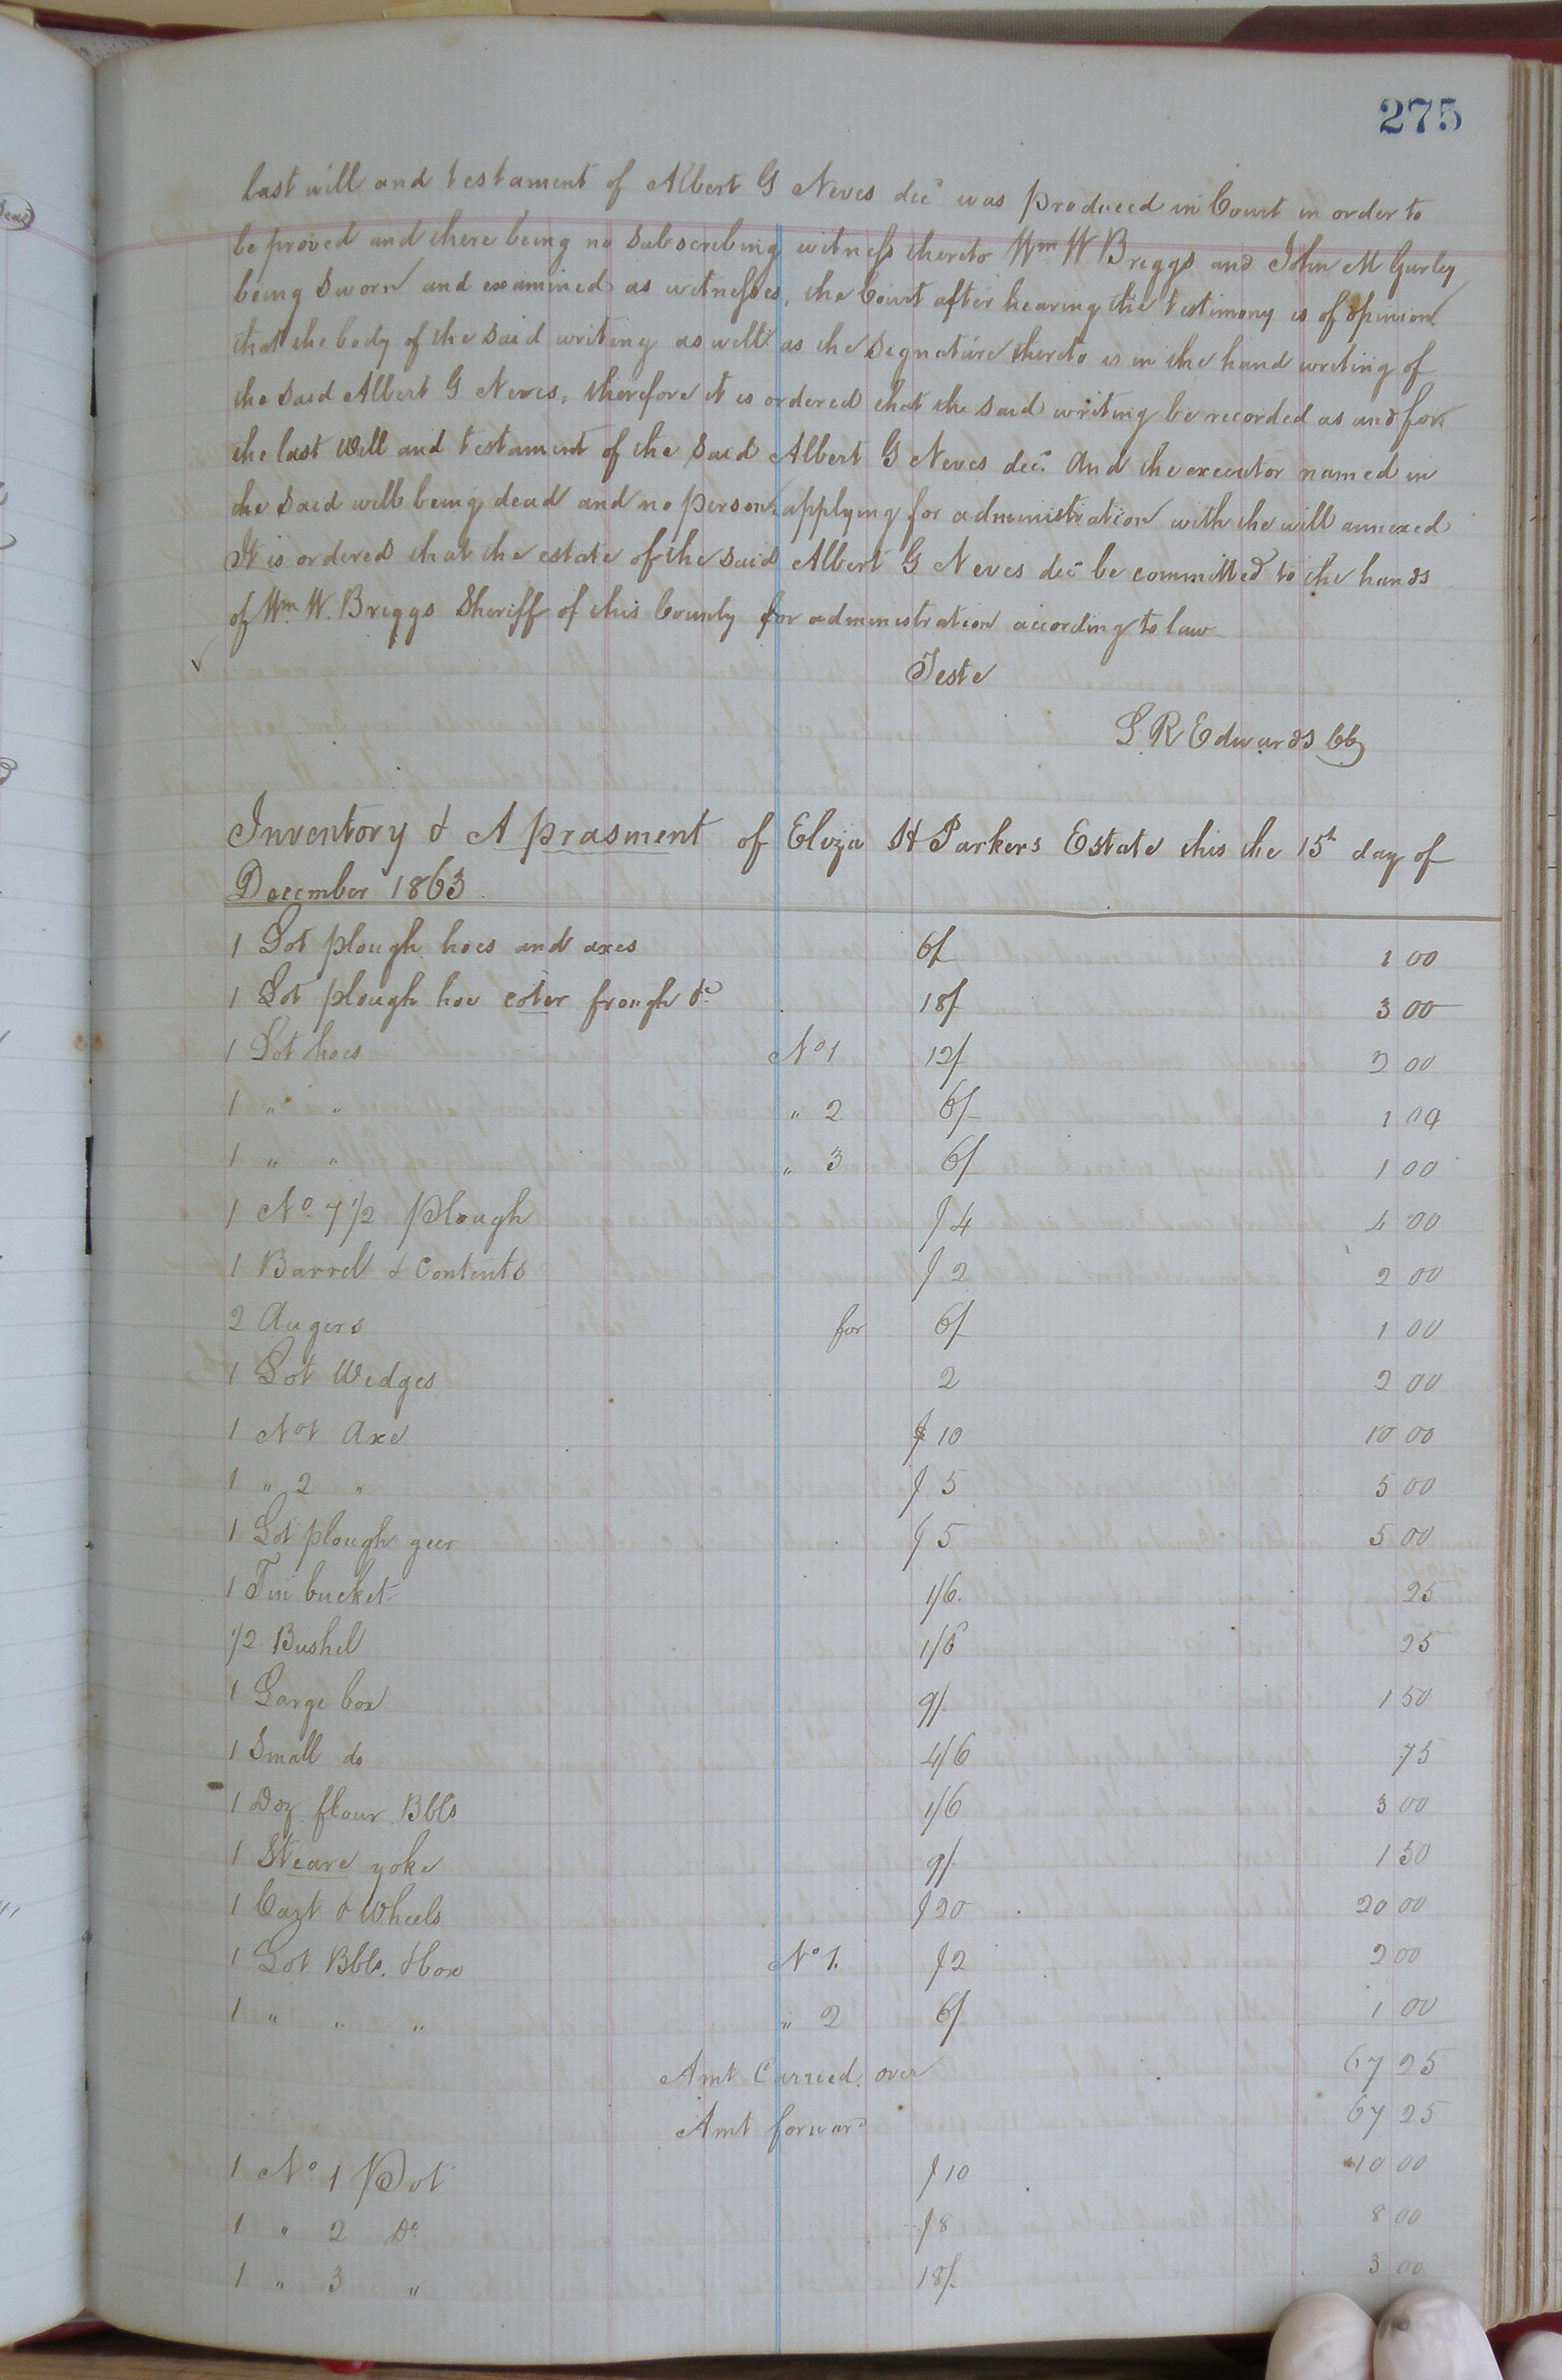 275
last will and testament of Albert G Neves decd was produced in Court in order to
be proved and there being no subscribing witness thereto Wm W Briggs and John M Gurley
being sworn and examined as witnesses, the Court after hearing the testimony is of opinion
that the body of the said writing as well as the signature thereto is in the hand writing of
the said Albert G Neves, therefore it is ordered that the said writing be recorded as and for
the last Will and testament of the said Albert G Neves decd. And the executor named in
the said will being dead and no person applying for administration with the will annexed
It is ordered that the estate of the said Albert G Neves decd be committed to the hands
of Wm W. Briggs Sheriff of this County for administration according to law
Teste
L R Edwards CC
Inventory & Aprasment of Eliza H Parkers Estate this the 15th day of
December 1863
1 Lot plough hoes and axes 6/ 1 00
1 Lot plough hoe coter frough &c 18/ 3 00
1 Lot hoes No 1 12/ 2 00
1 " " " 2 6/ 1 00
1 " " " 3 6/ 1 00
1 No. 7 1/2 Plough $4 4 00
1 Barrel & Contents $2 2 00
2 Augers for 6/ 1 00
1 Lot Wedges 2 2 00
1 No 1 Axe $10 10 00
1 " 2 " $5 5 00
1 Lot plough geer $5 5 00
1 Tin bucket 1/6. 25
1/2 Bushel 1/6 25
1 Large box 9/- 1 50
1 Small do 4/6 75
1 Doz flour Bbls 1/6 3 00
1 Steare yoke 9/- 1 50
1 Cart & Wheels $20 20 00
1 Lot Bbls. & box No 1. $2 2 00
1 " " " " 2 6/ 1 00
Amt Carried over 67 25
Amt forward 67 25
1 No 1 Pot $10 10 00
1 " 2 Do $8 8 00
1 " 3 " 18/- 3 00